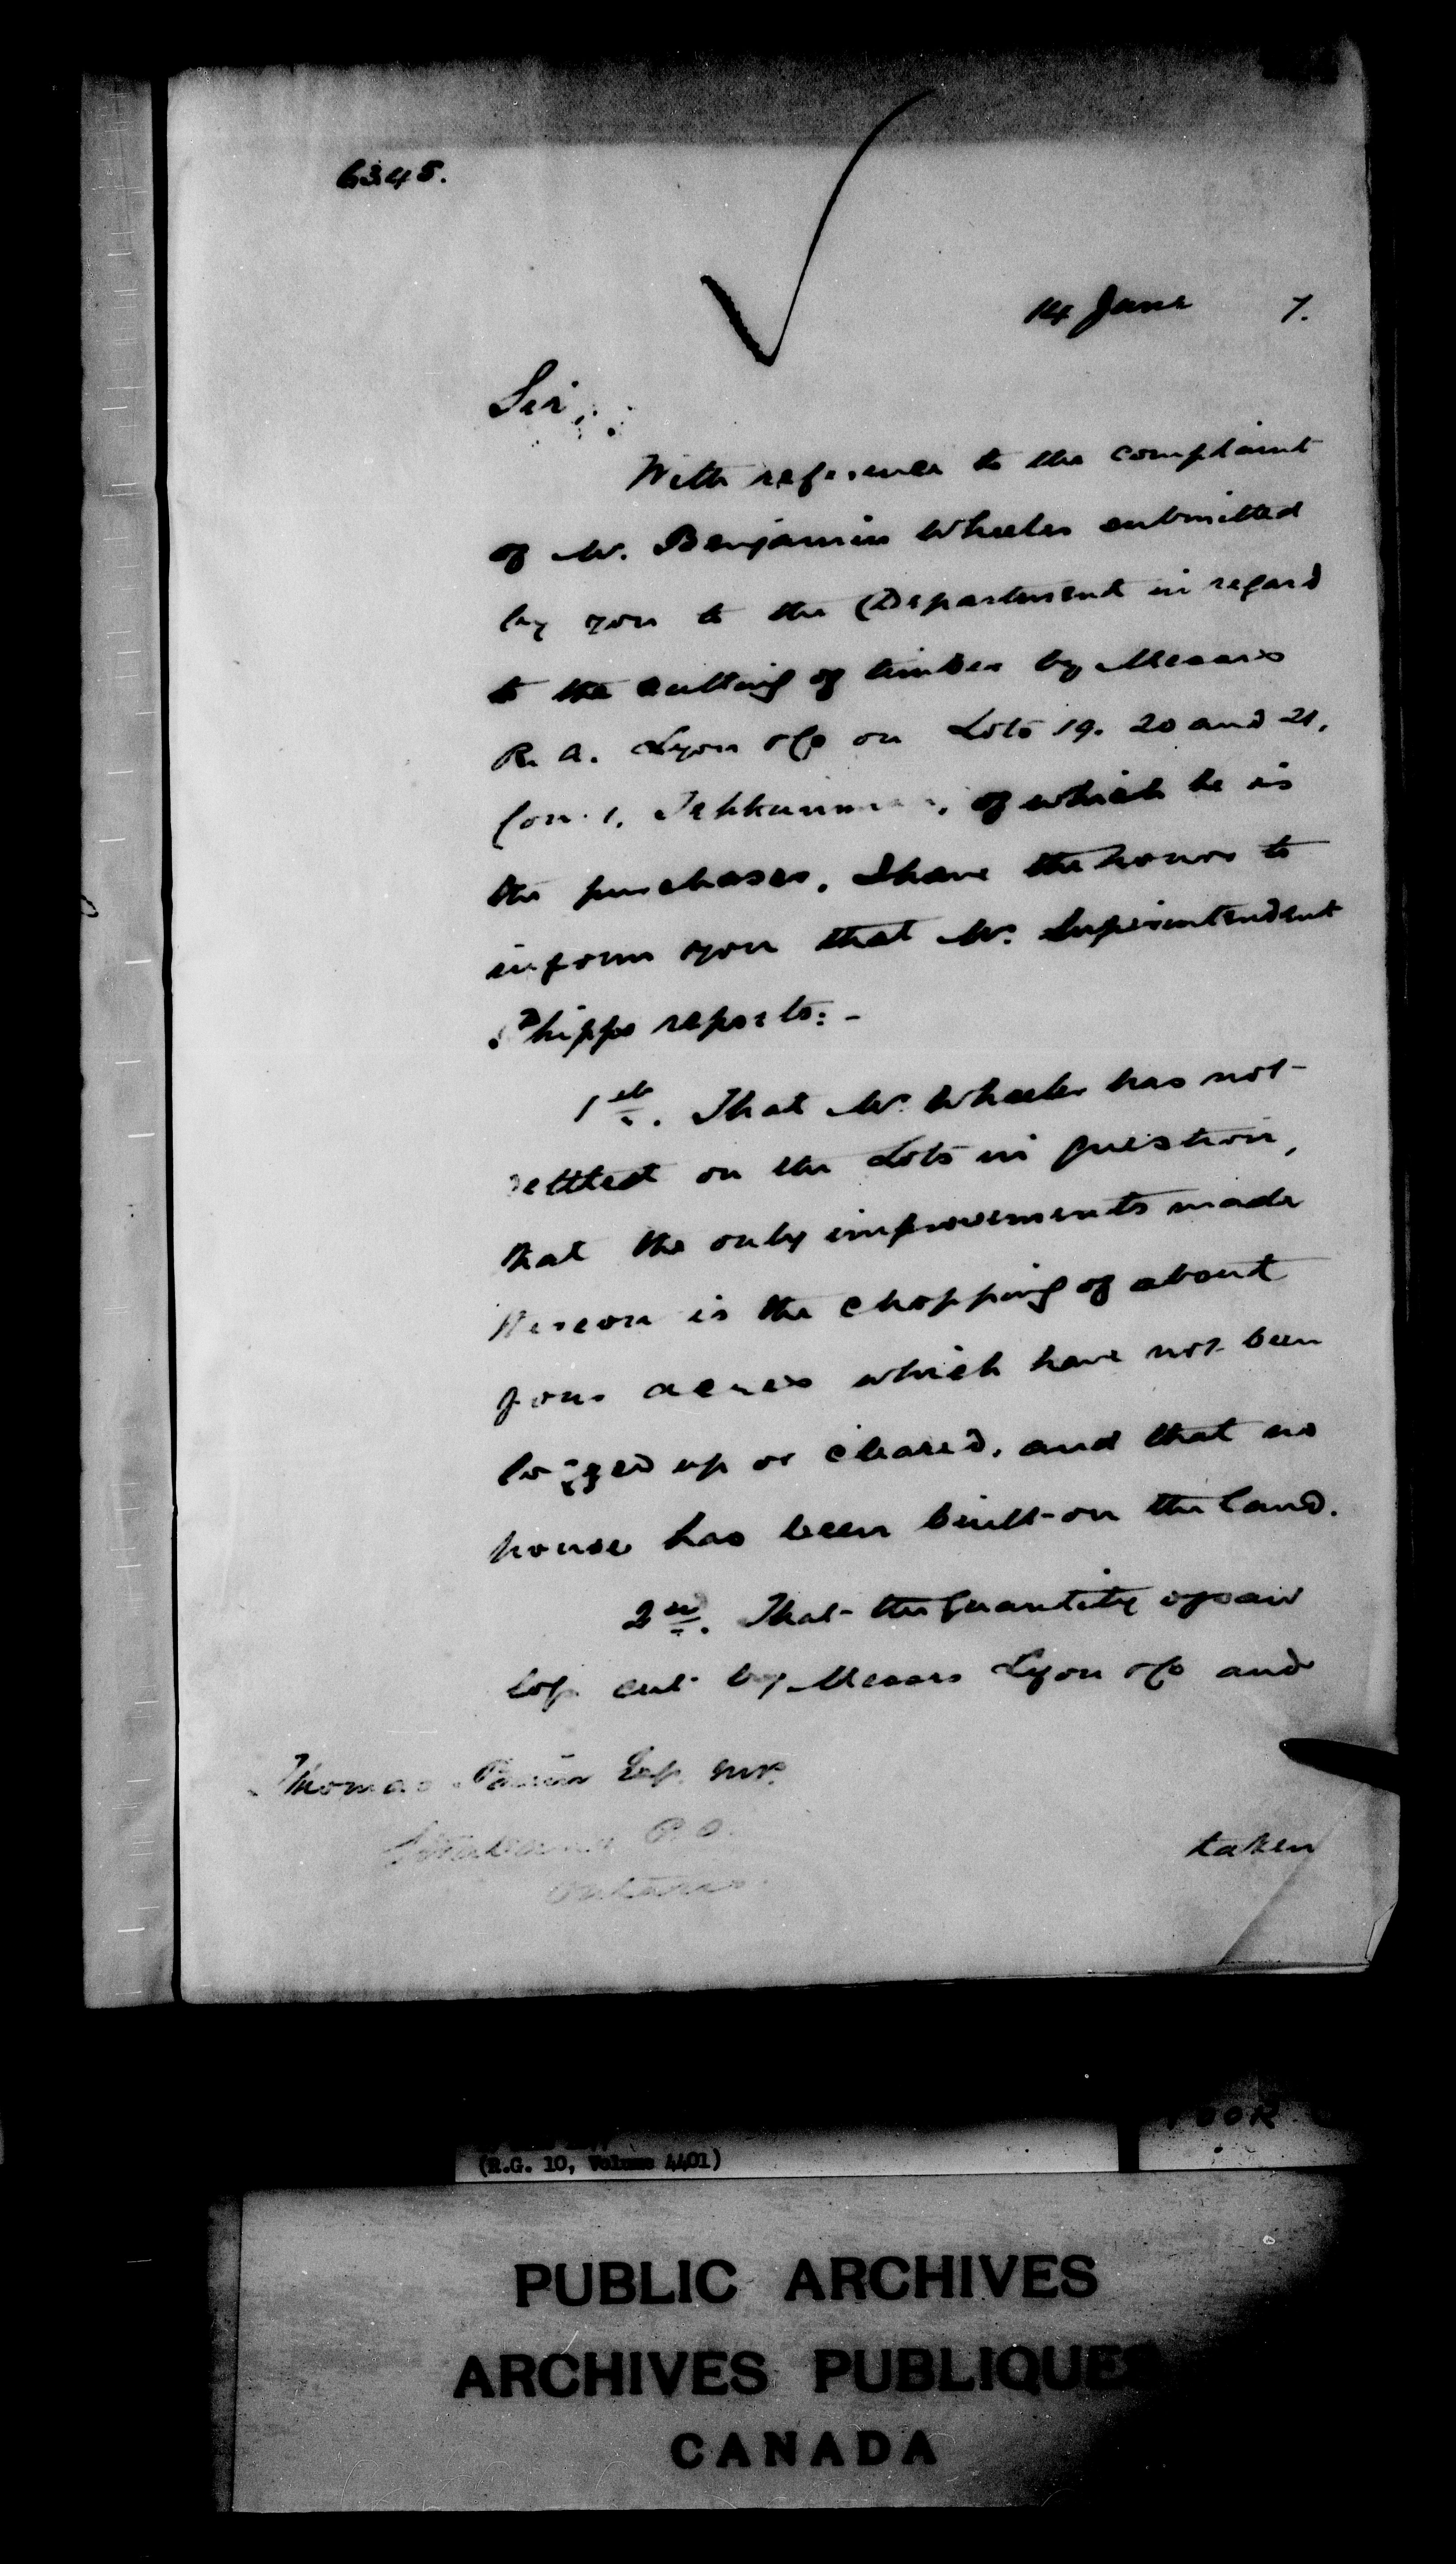 6345.
14 June 7.
Sir,
With reference to the complaint
of Mr. Benjamin Wheeler submitted
by you to the Department in regard
to the cutting of timber by Messrs
R. A. Lyon & Co on Lots 19. 20 and 21,
Con. 1, of which he is
the purchaser, I have the honor to
inform you that Mr. Superintendent
Phipps reports: -
1st. That Mr. Wheeler has not
settled on the Lots in question,
that the only improvements made
thereon is the chopping of about
four acres which have not been
logged up or cleared, and that no
house has been built on the land.
2nd. That the quantity of saw
logs cut by Messrs Lyon & Co and
Thomas Esq. M.P.
P.O.
Ontario.
taken
(R.G. 10, Volume 4401)
PUBLIC ARCHIVES
ARCHIVES PUBLIQUES
CANADA